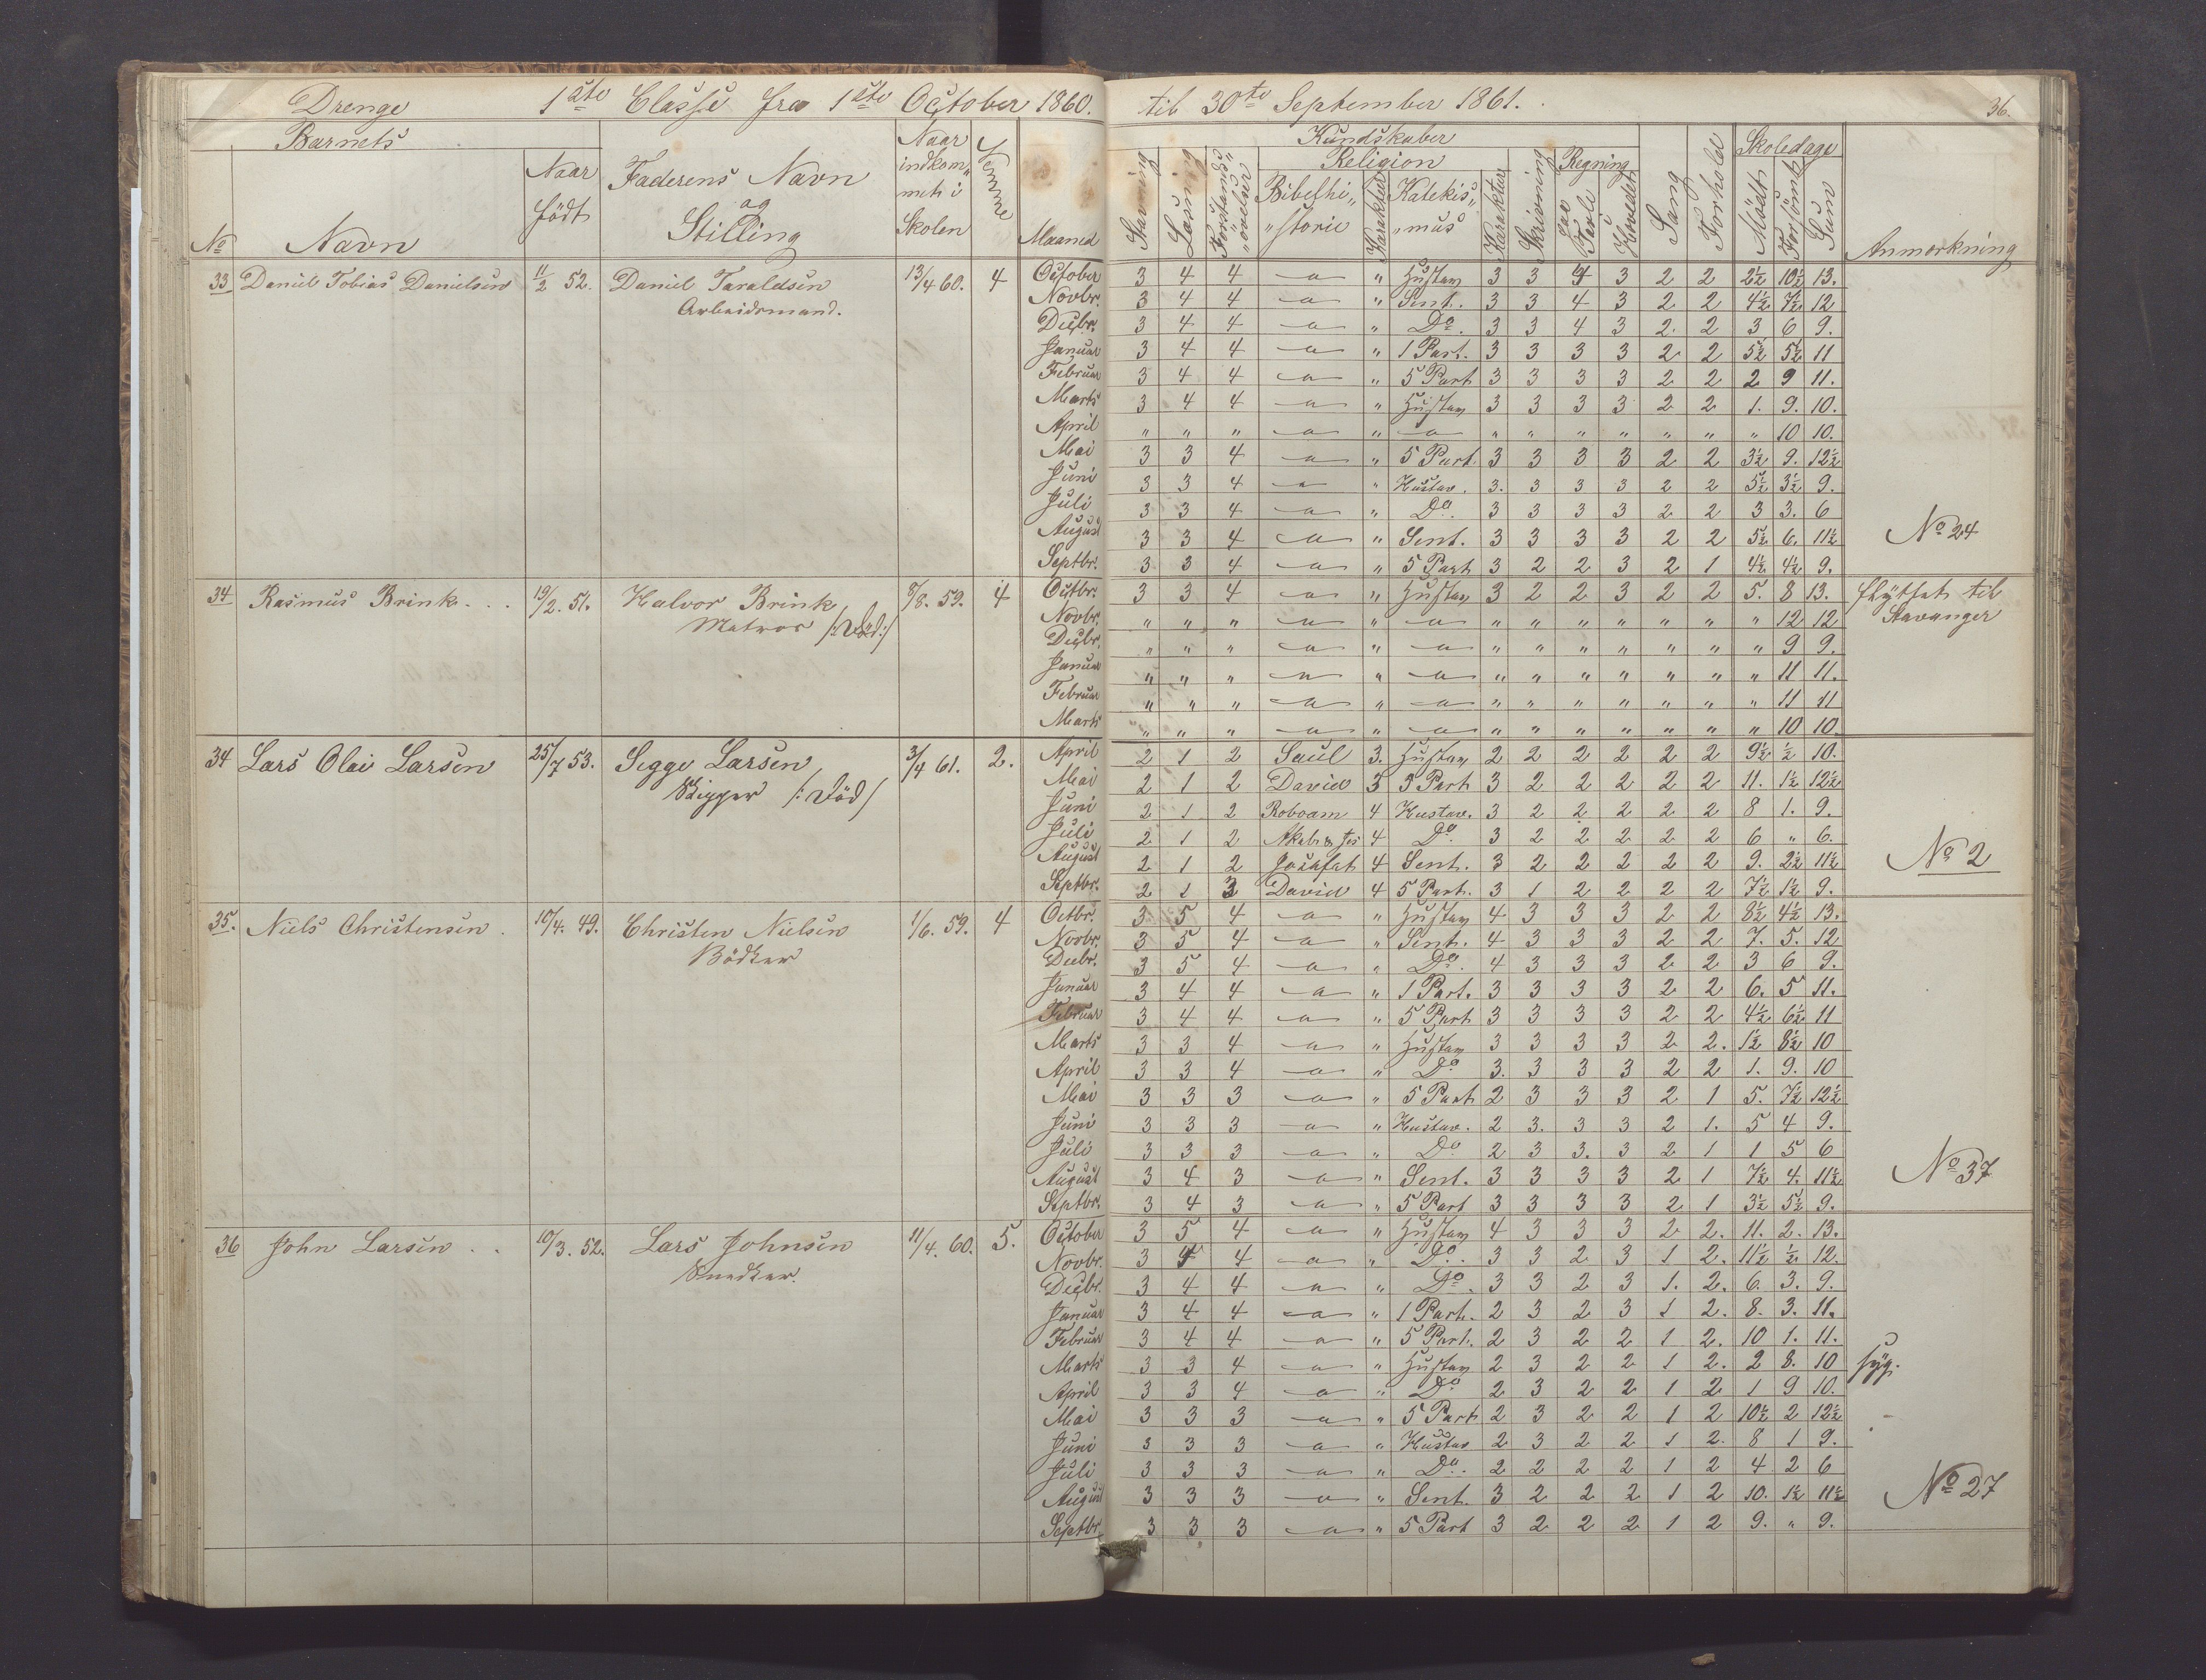 Drenge 1ste Classe fra 1ste October 1860. til 30te September 1861. 36.
Barnets Kundskaber Skoledage
No Navn Naar födt Faderens Navn og Stilling Naar indkommet i Skolen Nemme Maaned Stavning Læsning Forstands"övelser Religion Bibelhi"storie Karakter Katekis"mus Karakter Skrivning Regning Paa Tavle Hovedet Sang Forhold Mödt Forsömt Sum Anmærkning
33 Daniel Tobias Danielsen 11/2 52. Daniel Taraldsen 13/4 60. 4 October 3 4 4 — " Hustav 3 3 4 3 2 2 2½ 10½ 13.
Arbeidsmand. Novbr. 3 4 4 — " Sent. 3 3 4 3 2 2 4½ 7½ 12
Decbr. 3 4 4 — " Do. 3 3 4 3 2. 2 3 6 9.
Januar 3 4 4 — " 1 Part. 3 3 3 3 2 2 5½ 5½ 11
Februar 3 4 4 — " 5 Part 3 3 3 3 2 2 2 9 11.
Marts 3 4 4 — " Hustav 3 3 3 3 2 2 1. 9. 10.
April " " " — " — " " " " " " " 10 10.
Mai 3 3 4 — " 5 Part. 3 3 3 3 2 2 3½ 9. 12½
Juni 3 3 4 — " Hustav. 3. 3 3 3 2 2 5½ 3½ 9.
Juli 3 3 4 — " Do. 3 3 3 3 2 2 3 3. 6
August 3 3 4 — " Sent. 3 3 3 3 2 2 5½ 6. 11½ No 24
Septbr. 3 3 4 — " 5 Part 3 2 2 3 2 1 4½ 4½ 9.
34 Rasmus Brink . . . 19/2. 51. Halvor Brink 8/8. 59. 4 Octbr. 3 3 4 — " Hustav 3 2 2 3 2 2 5. 8 13. flyttet til
Matros /:Död:/ Novbr. " " " — " — " " " " " " " 12 12 Stavanger
Decbr. " " " — " — " " " " " " " 9 9.
Januar " " " — " — " " " " " " " 11 11.
Februar " " " — " — " " " " " " " 11 11
Marts " " " — " — " " " " " " " 10 10.
34 Lars Olai Larsen 25/7 53. Segge Larsen 3/4 61. 2. April 2 1 2 Saul 3. Hustav 2 2 2 2 2 2 9½ ½ 10.
Skipper /:Död/ Mai 2 1 2 David 3 5 Part 3 2 2 2 2 2 11. 1½ 12½
Juni 2 1 2 Roboam 4 Hustav. 3 2 2 2 2 2 8 1. 9.
Juli 2 1 2 Akab & Jos 4 Do 3 2 2 2 2 2 6 " 6.
August 2 1 2 Josafat 4 Sent. 3 2 2 2 2 2 9. 2½ 11½ No 2
Septbr. 2 1 3 David 4 5 Part. 3 1 2 2 2 2 7½ 1½ 9.
35. Niels Christensen . 10/4. 49. Christen Nielsen 1/6. 59. 4 Octbr. 3 5 4 — " Hustav 4 3 3 3 2 2 8½ 4½ 13.
Bödker Novbr. 3 5 4 — " Sent. 4 3 3 3 2 2 7. 5. 12
Decbr. 3 5 4 — " Do. 4 3 3 3 2 2 3 6 9.
Januar 3 4 4 — " 1 Part. 3 3 3 3 2 2 6. 5 11.
Februar 3 4 4 — " 5 Part 3 3 3 3 2 2 4½ 6½ 11
Marts 3 3 4 — " Hustav 3 3 3 3 2 2. 1½ 8½ 10
April 3 3 4 — " Do 3. 3 3 3 2 2 1. 9. 10
Mai 3 3 3 — " 5 Part 2 3 3 3 2 1 5. 7½ 12½
Juni 3 3 3 — " Hustav. 2 3. 3 3 2 1. 5 4 9.
Juli 3 3 3 — " Do 2 3 3. 3 2 1 1 5 6
August 3 4 3 — " Sent. 3 3 3 3 2 1 7½ 4. 11½ No 37
Septbr. 3 4 3 — " 5 Part 3 3 3 3 2 1 3½ 5½ 9.
36 John Larsen . . 10/3. 52. Lars Johnsen 11/4. 60. 5. October 3 5 4 — " Hustav 4 3 3 3 2 2. 11. 2. 13.
Snedker. Novbr. 3 4 4 — " Do. 3 3 2 3 1 2. 11½ ½ 12.
Decbr. 3 4 4 — " Do. 3 3 2 3 1. 2. 6. 3. 9.
Januar 3 4 4 — " 1 Part. 2 3 2 3 1 2. 8. 3. 11.
Februar 3 4 4 — " 5 Part. 2 3 2 2 1 2. 10 1. 11.
Marts 3 3 4 — " Hustav 2 3 2 2 1 2. 2 8. 10 syg.
April 3 3 4 — " Do 2 3 2 2 1 2 1 9 10.
Mai 3 3 3 — " 5 Part 2 3 2 2 1 2 10½ 2 12½
Juni 3 3 3 — " Hustav 2 3 2 2 1 2. 8 1 9.
Juli 3 3 3 — " Do. 2 2 2 2 1 2 4 2 6
August 3 3 3 — " Sent. 3 2 2 2 1 2 10. 1½ 11½ No 27
Septbr. 3 3 3 — " 5 Part 3 2 2 2 1 2 9. " 9.